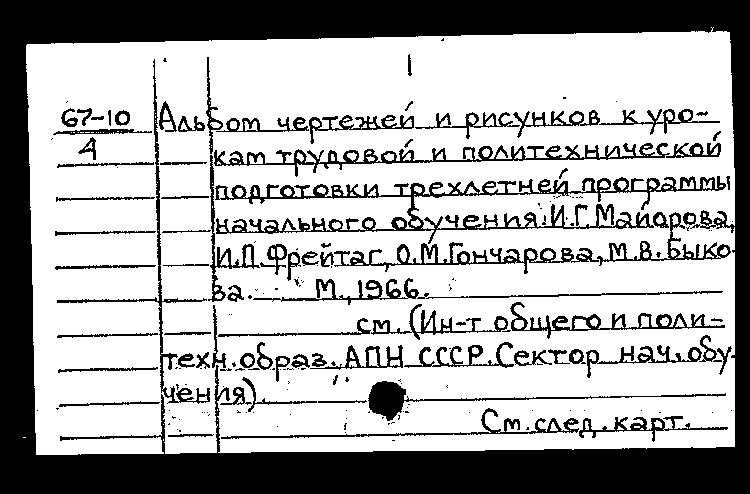 67-10
4
Альбом чертежей и рисунков к уро-
кам трудовой и политехнической
подготовки трехлетней программы
начального обучения. И.Г. Майорова,
И.П. Фрейтаг, О.М. Гончарова, М.В. Быко-
ва. М., 1966.
см. (Ин-т общего и поли-
техн. образ. АПН СССР. Сектор нач. обу-
чения).
См. след. карт.